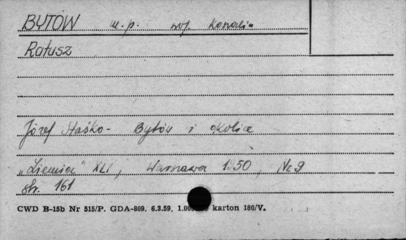 BYTÓW u.p. woj. koszali-
Ratusz
Józef Staśko - Bytów i okolice
"Ziemia" XLI, Warszawa 1950, Nr 9
str. 161
CWD B-15b Nr 515/P. GDA-809. 6.3.59. 1.00 karton 180/V.